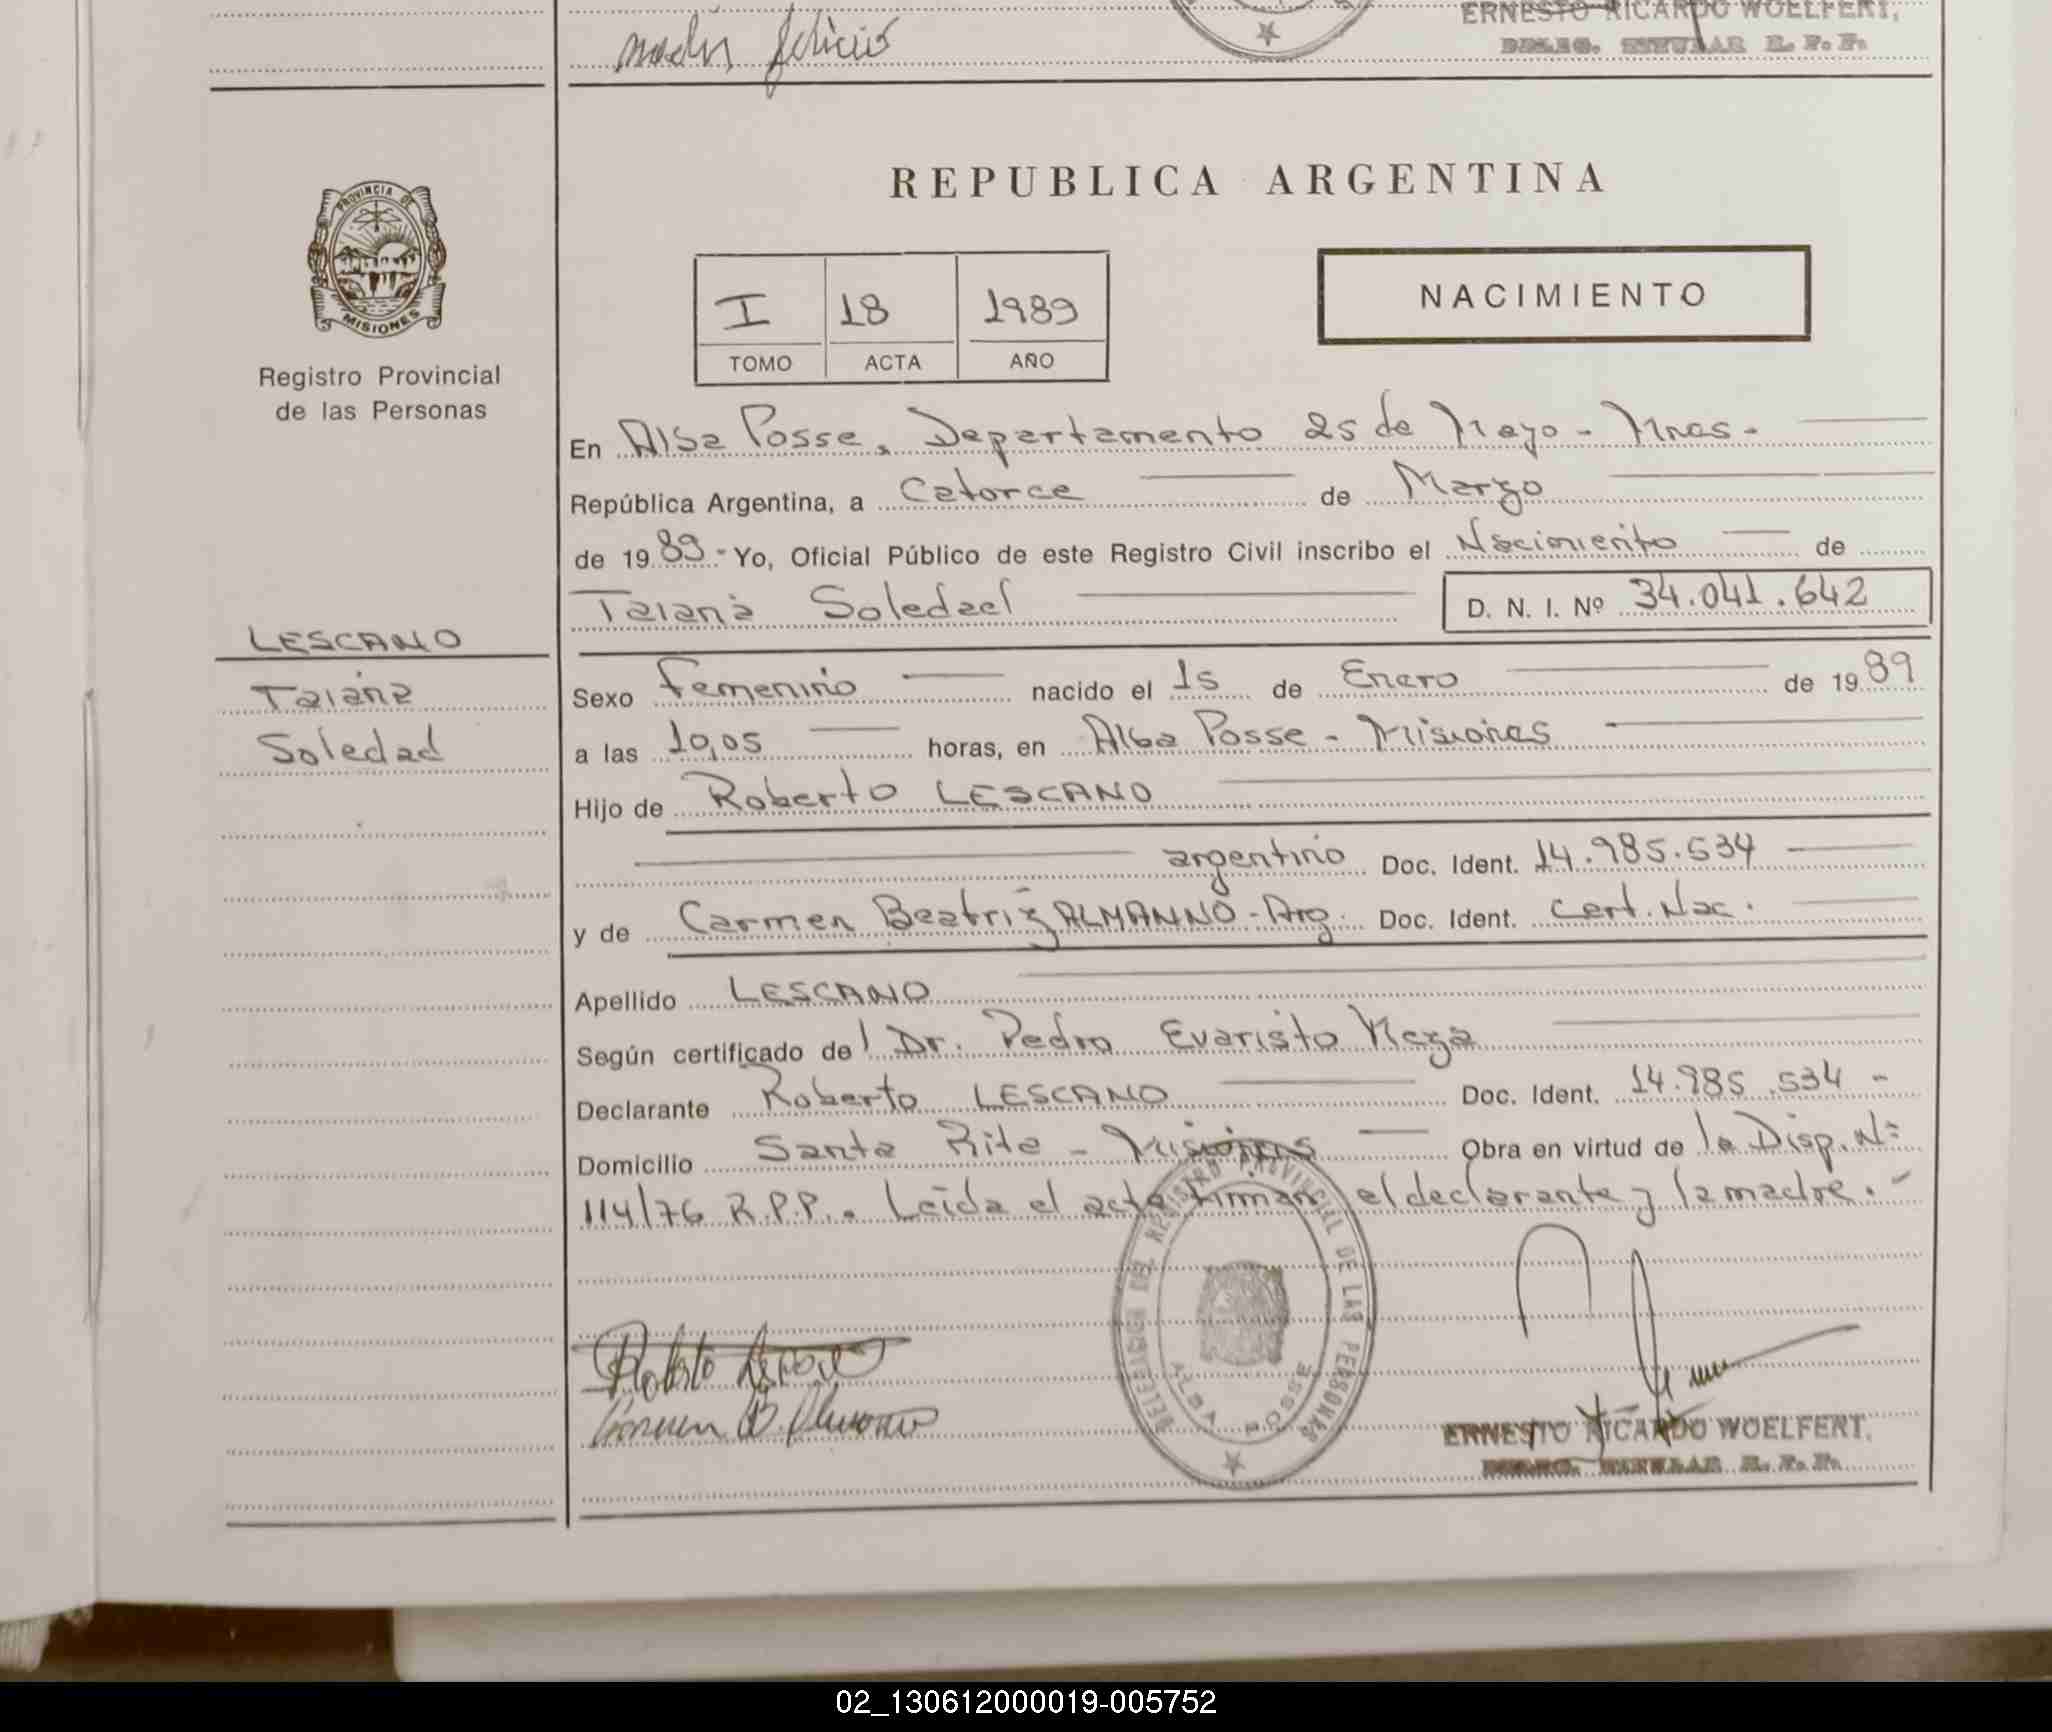 ERNESTO RICARDO WOELFERT,
DELEG. TITULAR R. P. P.
REPUBLICA ARGENTINA
PROVINCIA DE
MISIONES
Registro Provincial
de las Personas
I 18 1989
TOMO ACTA AÑO
NACIMIENTO
En Alba Posse, Departamento 25 de Mayo - Mnes -
República Argentina, a Catorce de Marzo
de 1989 - Yo, Oficial Público de este Registro Civil inscribo el Nacimiento de
Taiana Soledad D. N. I. Nº 34.041.642
LESCANO
Taiana
Soledad
Sexo femenino nacido el 15 de Enero de 1989
a las 10,05 horas, en Alba Posse - Misiones
Hijo de Roberto LESCANO
argentino Doc. Ident. 14.985.534
y de Carmen Beatriz ALMANNO - Arg. Doc. Ident. Cert. Nac.
Apellido LESCANO
Según certificado del Dr. Pedro Evaristo
Declarante Roberto LESCANO Doc. Ident. 14.985.534 -
Domicilio Santa Rita - Misiones Obra en virtud de la Disp. Nº
114/76 R.P.P. Leída el acta firman el declarante y la madre. -
DELEGACION DEL REGISTRO PROVINCIAL DE LAS PERSONAS
ALBA POSSE
Roberto Lescano
Carmen B. Almanno
ERNESTO RICARDO WOELFERT,
DELEG. TITULAR R. P. P.
02_130612000019-005752